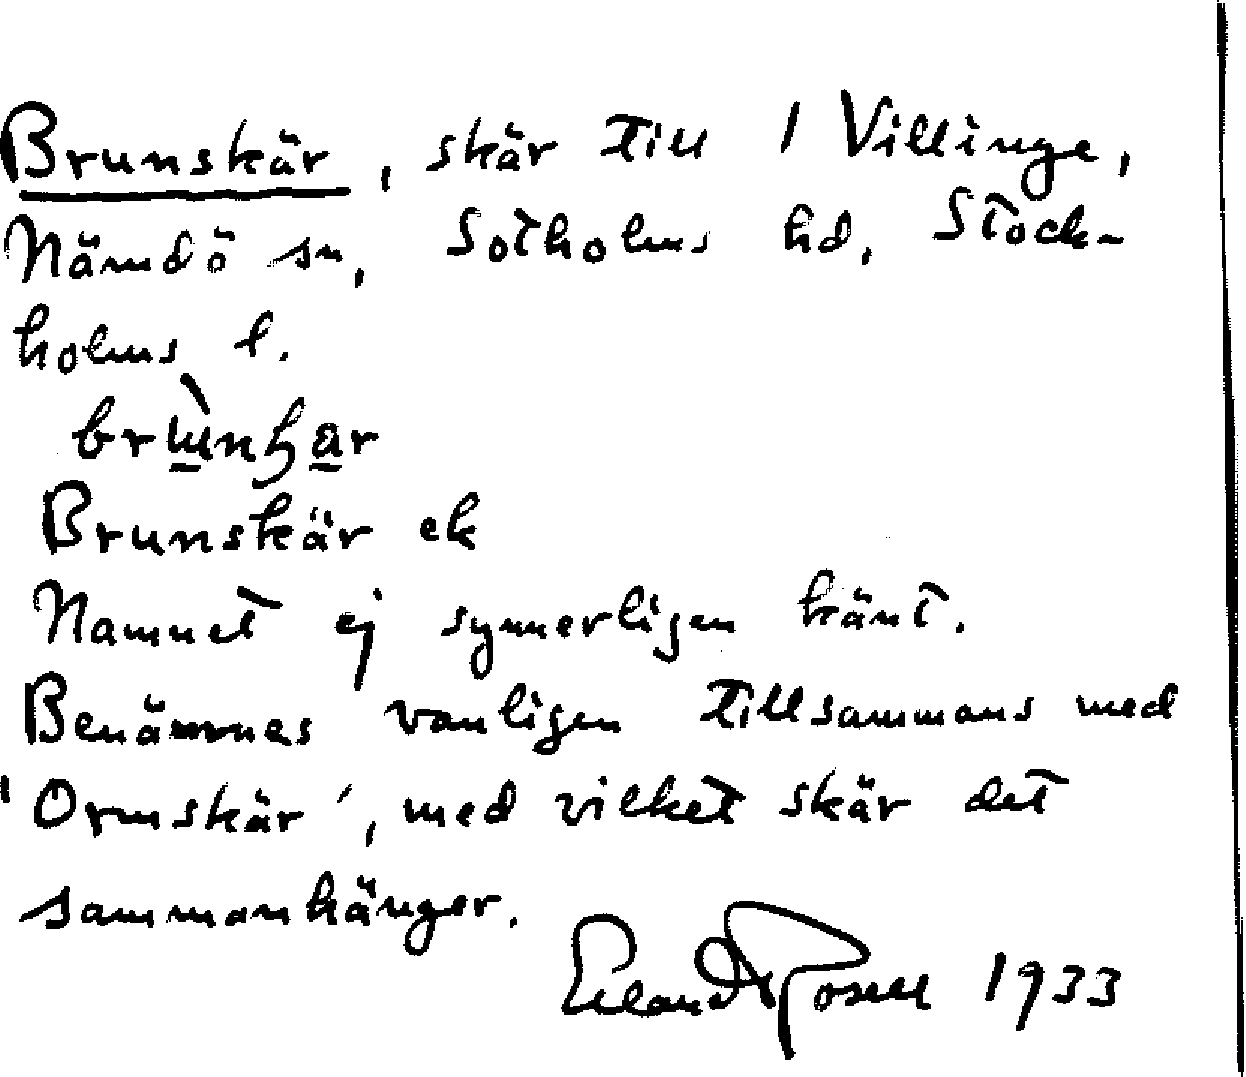 Brunskär, skär till 1 Villinge,
Nämdö sn, Sotholms hd, Stock-
holms l.
Brunskär ek
Namnet ej synnerligen känt.
Benämnes vanligen tillsammans med
'Ormskär', med vilket skär det
sammanhänger.
Erland Rosell 1933